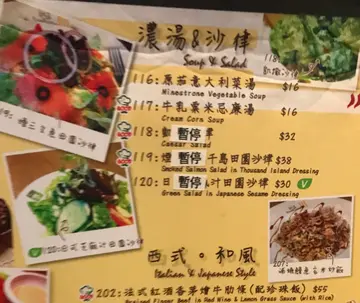 濃湯&沙律
Soup & Salad
116: 原茄意大利菜湯 $16
Minestrone Vegetable Soup
117: 牛乳粟米忌廉湯 $16
Cream Corn Soup
118: 暫停 $32
Caesar Salad
119: 煙 暫停 千島田園沙律 $38
Smoked Salmon Salad in Thousand Island Dressing
120: 日 暫停 汁田園沙律 $30 V
Green Salad in Japanese Sesame Dressing
118:
凱撒沙律
119: 煙三文魚田園沙律
120: 日式芝麻汁田園沙律
西式。和風
Italian & Japanese Style
202: 法式紅酒香茅燴牛肋條(配珍珠飯) $55
Braised Finger Beef in Red Wine & Lemon Grass Sauce (with Rice)